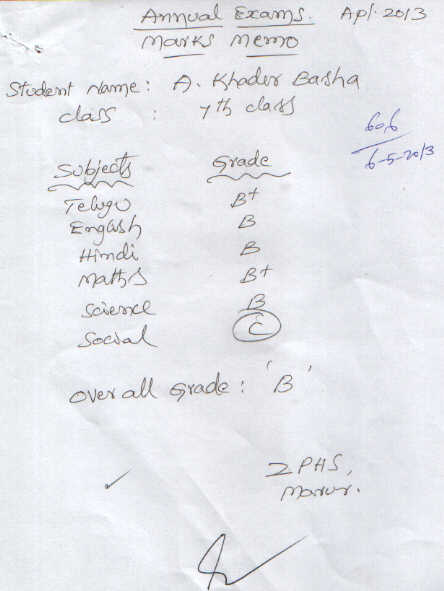 Annual Exams. Apl. 2013
Marks Memo
Student Name : A. Khader Basha
class : 7th class
606
6-5-2013
Subjects Grade
Telugu B+
English B
Hindi B
Maths B+
Science B
Social C
over all Grade : 'B'
ZPHS,
Marur.